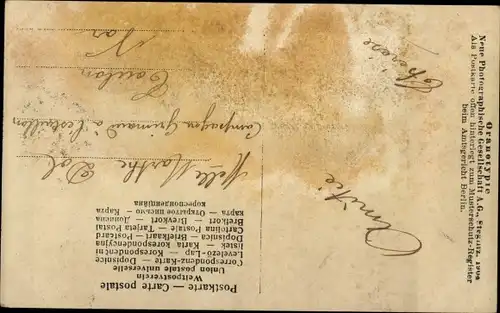 Postkarte — Carte postale
Weltpostverein
Union postale universelle
Correspondenz-Karte — Dopisnice
Levelezo-Lap — Korespondentni
lístek — Karta korespondencyjna
Dopisnica — Briefkaart — Postcard
Cartolina Postale — Tarjeta Postal
Brefkort — Brevkort — Дописна
карта — Открытое письмо — Карта
корреспонденційна
Melle Marthe Dol
Campagne Grimaud à Escaillon
Toulon
Var
Amitié
Thérèse
Oranotypie
Neue Photographische Gesellschaft A.G., Steglitz, 1904
Als Postkarte offen hinterlegt zum Musterschutz-Register
beim Amtsgericht Berlin.